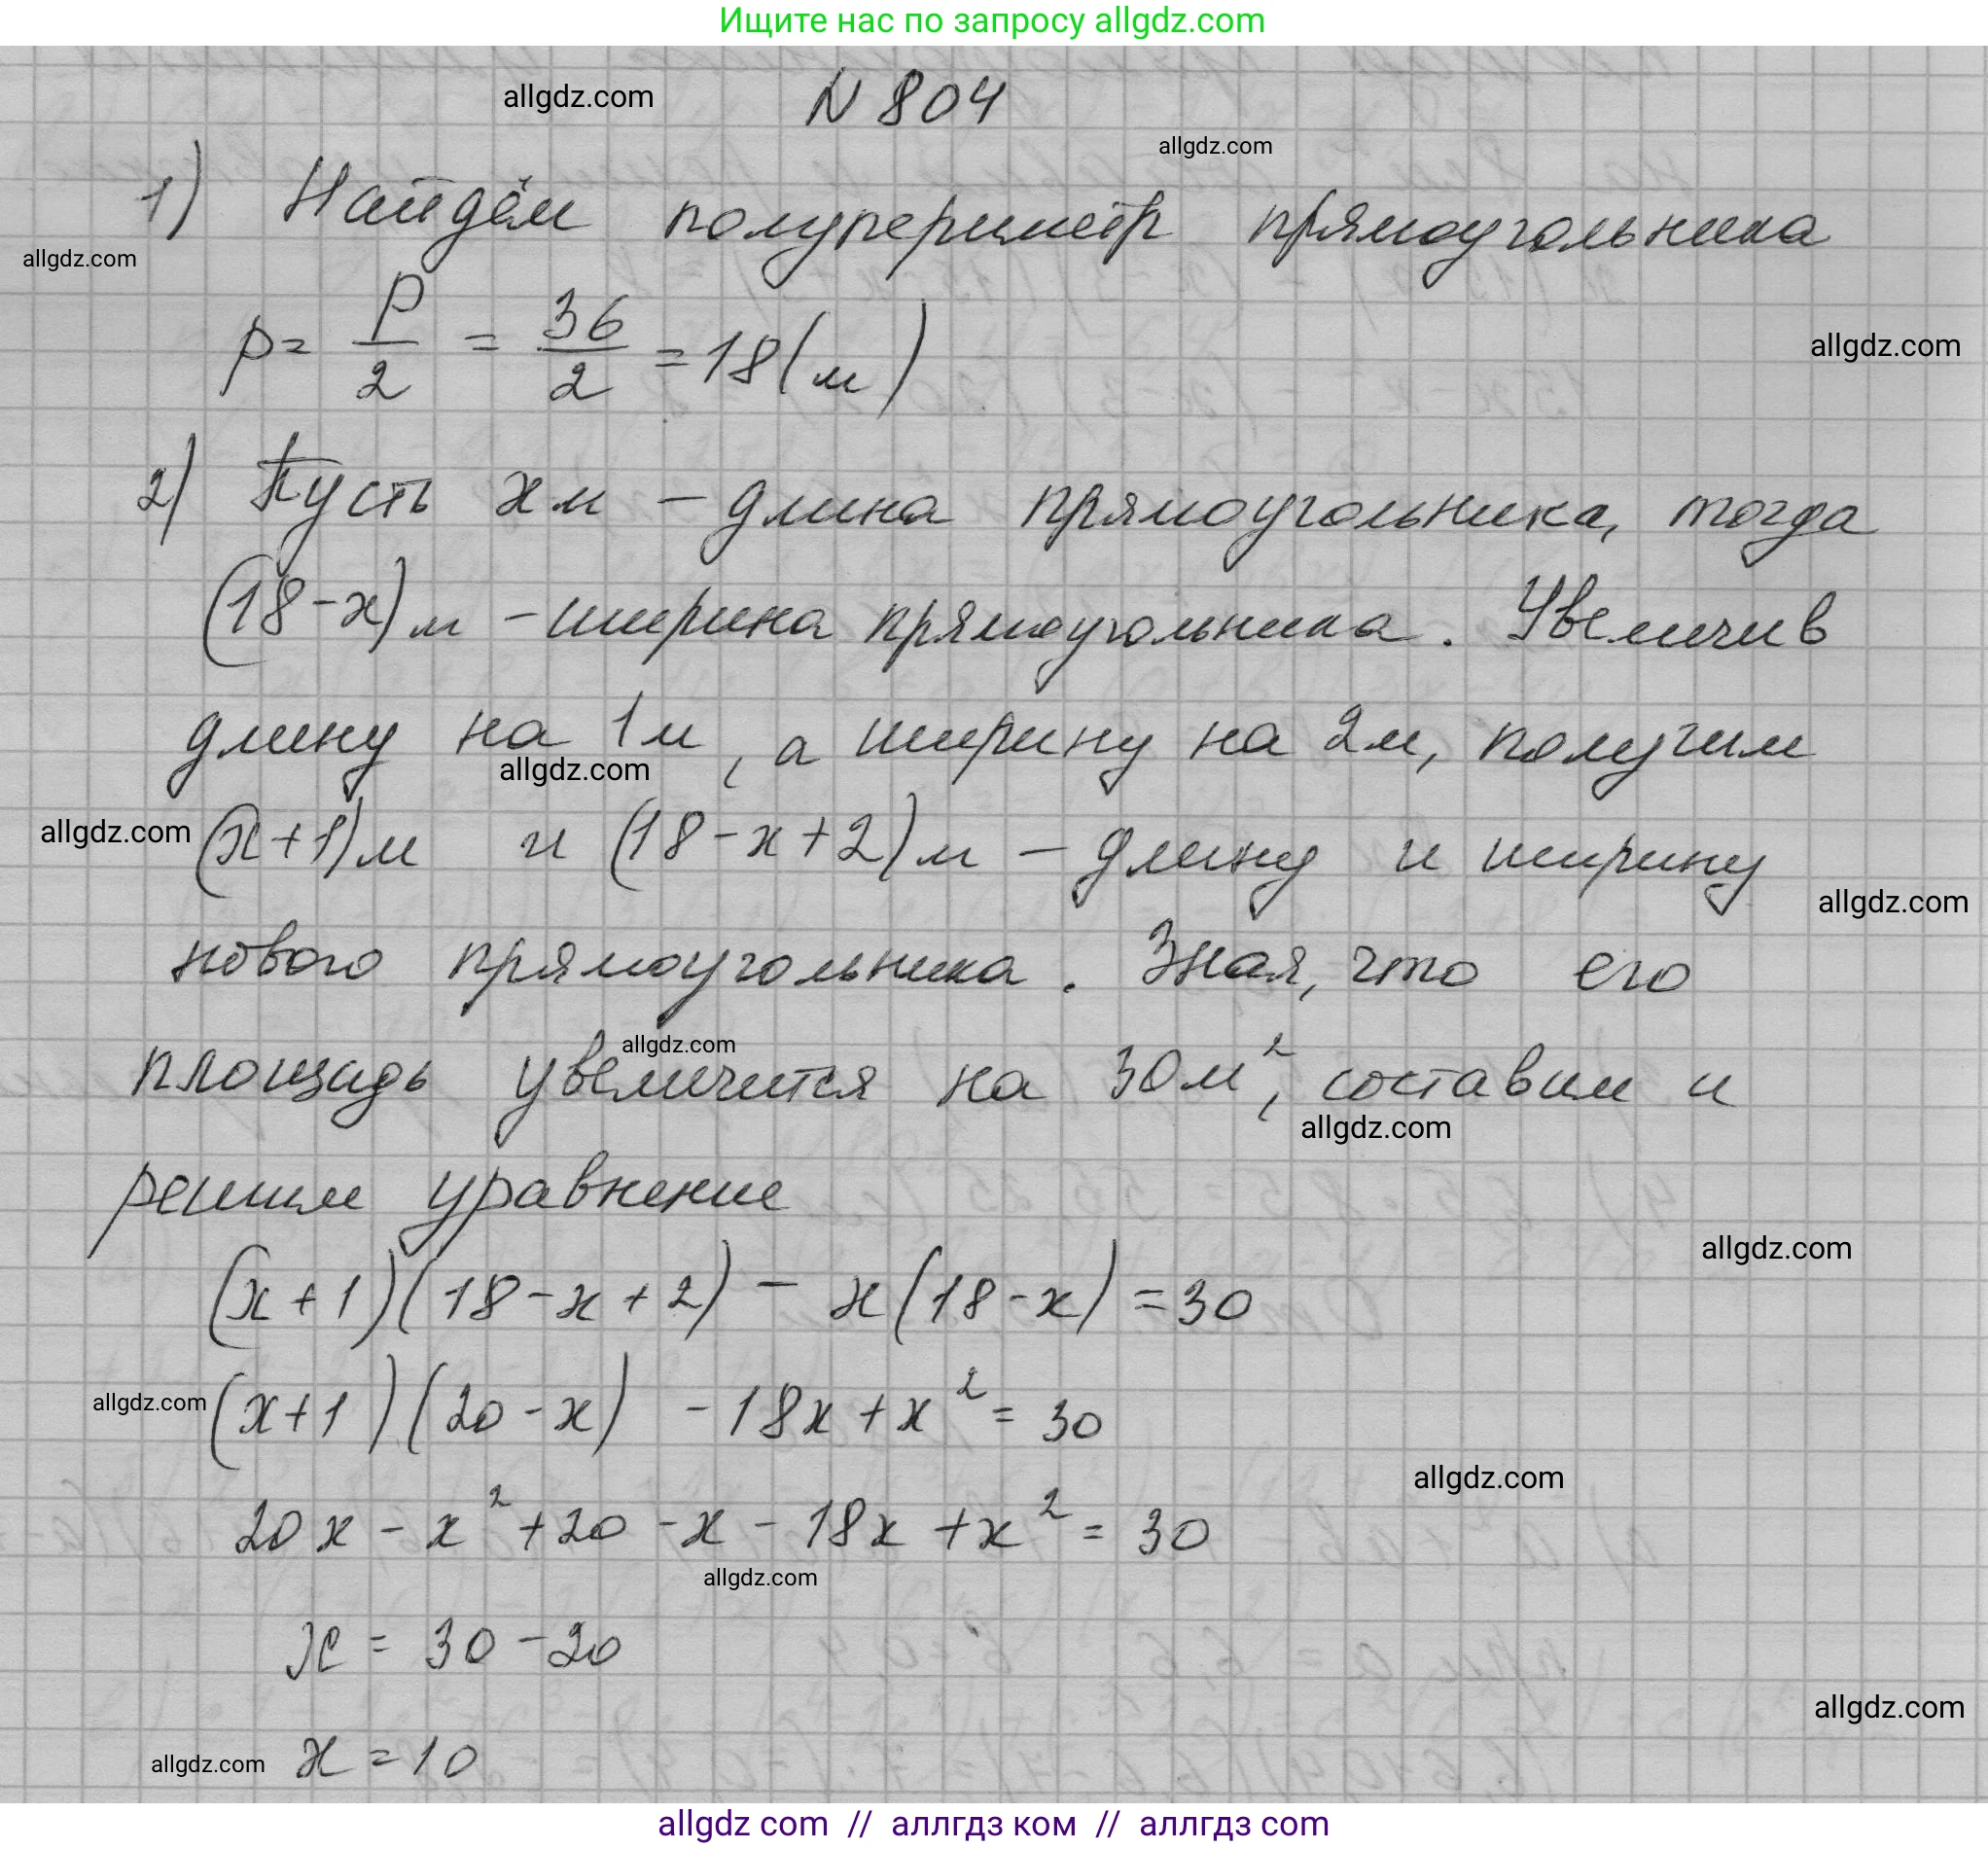 Ищите нас по запросу allgdz.com
allgdz.com
N 804
allgdz.com
1) Найдём полупериметр прямоугольника
allgdz.com
p = P/2 = 36/2 = 18 (м)
allgdz.com
2) Пусть x м – длина прямоугольника, тогда
(18-x) м – ширина прямоугольника. Увеличив
длину на 1 м, а ширину на 2 м, получим
allgdz.com
allgdz.com
(x+1) м и (18-x+2) м – длину и ширину
allgdz.com
нового прямоугольника. Зная, что его
allgdz.com
площадь увеличится на 30 м², составим и
allgdz.com
решим уравнение
allgdz.com
(x+1)(18-x+2) – x(18-x) = 30
allgdz.com
(x+1)(20-x) - 18x + x² = 30
allgdz.com
20x - x² + 20 - x - 18x + x² = 30
allgdz.com
x = 30 - 20
allgdz.com
allgdz.com
x = 10
allgdz com // аллгдз ком // аллгдз com